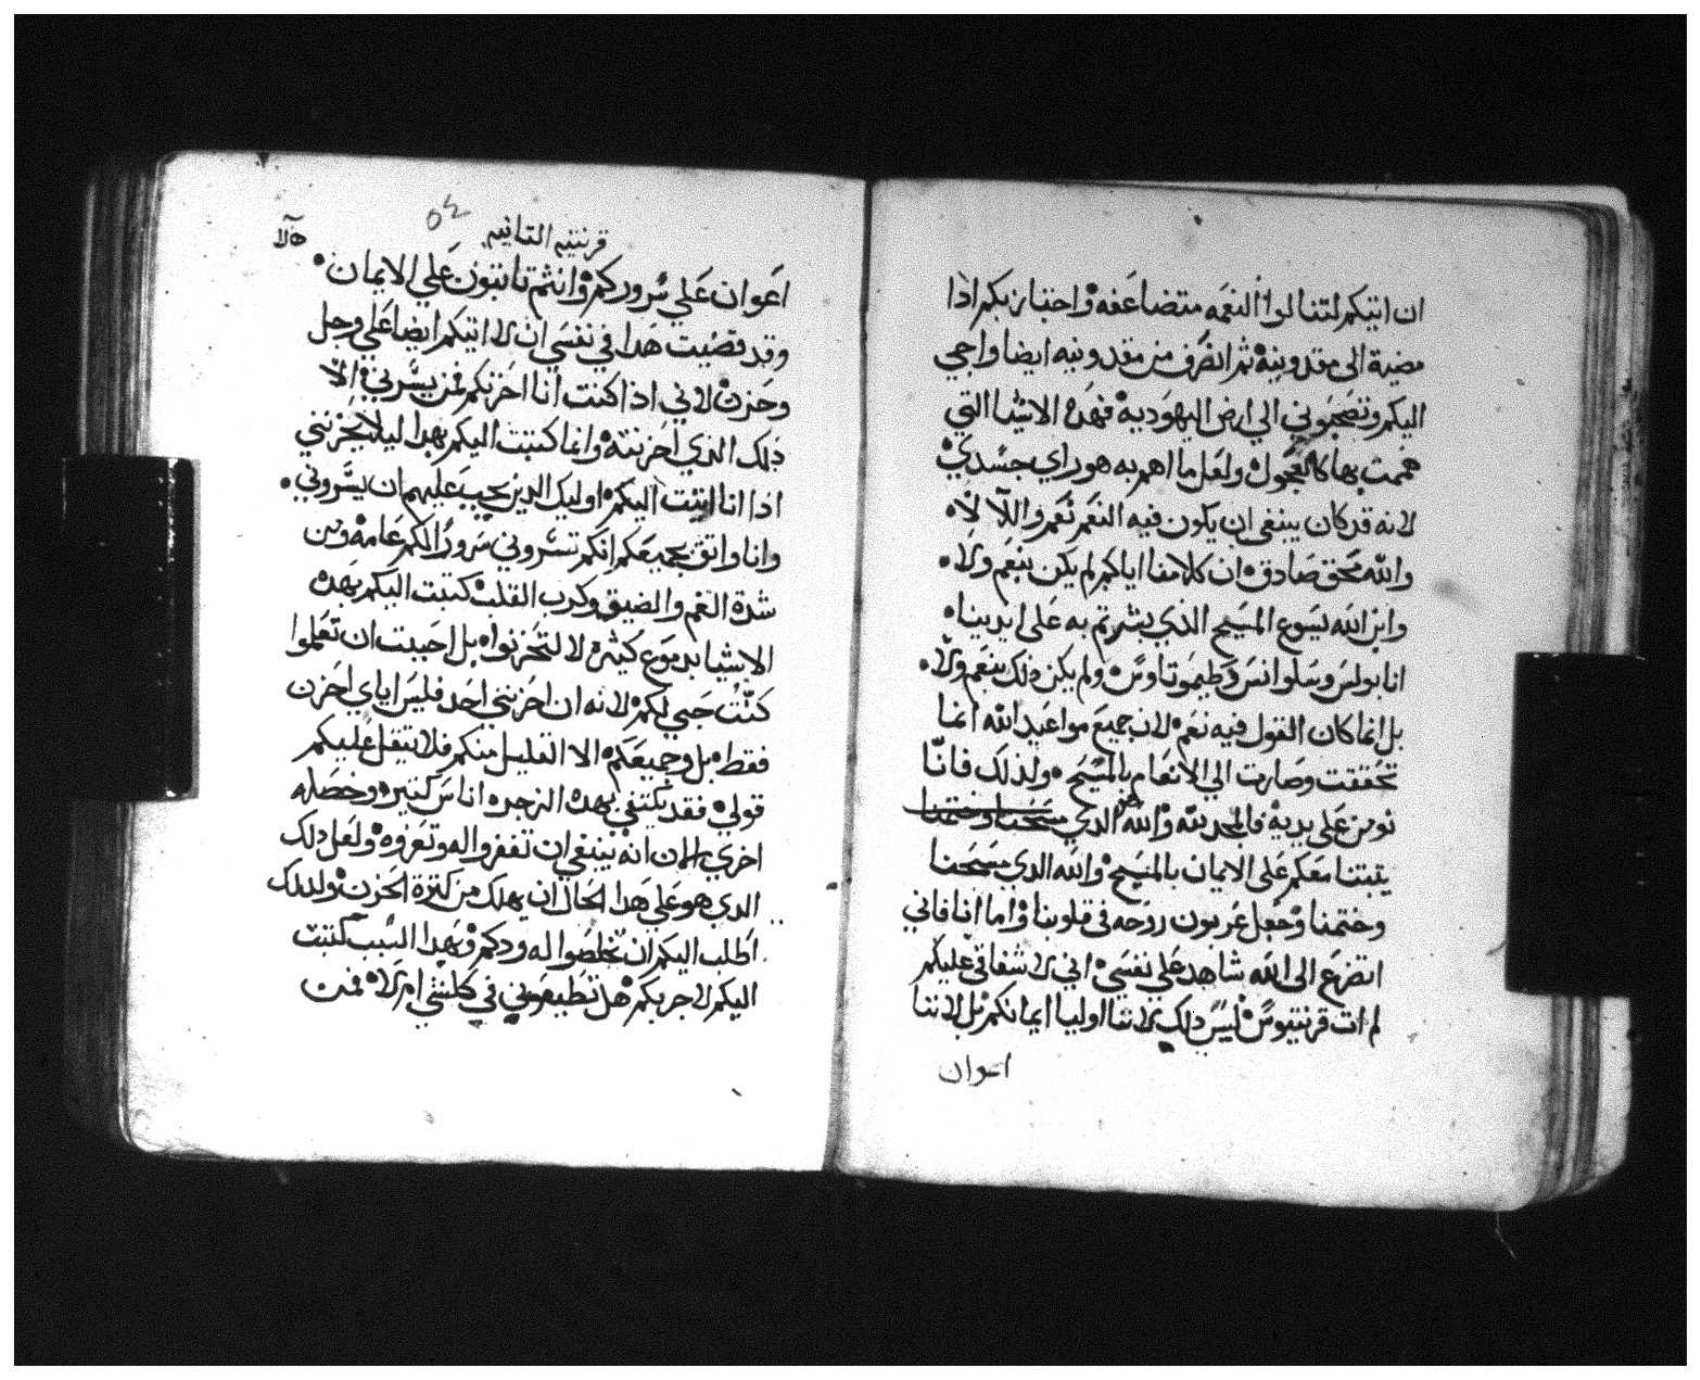 ان اتيكم لتنالوا النعمه متضاعفه واجتاز بكم اذا
مضية الى مقدونيه ثم انصرف من مقدونيه ايضا واجي
اليكم وتصحبوني الي ارض اليهوديه فهذه الاشيا التي
هممت بها كالعجول ولعل ما اهم به هو راي جسدي
لانه قد كان ينبغي ان يكون فيه النعم نعم واللا لا
والله محق صادق ان كلامنا اياكم لم يكن بنعم ولا
وابن الله يسوع المسيح الذي بشرتم به على ايدينا
انا بولس وسلوانس وطيموتاوس ولم يكن ذلك بنعم ولا
بل انما كان القول فيه نعم لان جميع مواعيد الله انما
تحققت وصارت الي الانعام بالمسيح ولذلك فانا
نومن على يديه فالمجد لله والله الذي مسحنا وختمنا
يثبتنا معكم على الايمان بالمسيح والله الدي مسحنا
وختمنا وجعل عربون روحه في قلوبنا واما انا فاني
اتضرع الى الله شاهد علي نفسي اني لاشفاقي عليكم
لم ات قرنتيوس ليس ذلك لاننا اوليا ايمانكم بل لاننا
اعوان
قرنتيه التانيه
٥٤
اعوان على سروركم وانتم تابتون علي الايمان
وقد قضيت هدا في نفسي ان لا اتيكم ايضا علي وجل
وحزن لاني اذا كنت انا احزنكم فمن يسرني الا
ذلك الذي احزنته وانما كتبت اليكم بهدا ليلا يحزنني
اذا انا اتيت اليكم اوليك الدين يجب عليهم ان يسروني
وانا واتق بجميعكم انكم تسروني سرورا لكم عامه ومن
شدة الغم والضيق وكرب القلب كتبت اليكم بهده
الاشيا بدموع كثيره لا لتحزنوا بل احببت ان تعلموا
كنت حبي لكم لانه ان احزنني احد فليس اياي احزن
فقط بل وجميعكم الا القليل منكم فلا تيقل عليكم
قولي فقد يكتفي بهده الزجره اناس كتيره وخصله
اخري انه ينبغي ان تغفروا له وتعزوه ولعل دلك
الدي هو علي هدا الحال ان يهلك من كترة الحزن ولدلك
اطلب اليكم ان تخلصوا له ودكم وبهدا السبب كتبت
اليكم لاجربكم هل تطيعوني في كلشي ام لا فمن